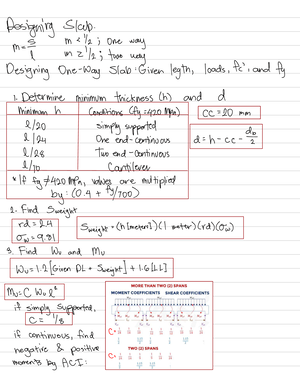 Designing Slab.
m = s/l m < 1/2 ; one way
m ≥ 1/2 ; two way
Designing One-Way Slab: Given legth, loads, fc', and fy
1. Determine minimum thickness (h) and d
minimum h Conditions (fy = 420 MPa)
l/20 simply supported
l/24 One end-continuous
l/28 Two end-continuous
l/10 Cantilever
* If fy ≠ 420 MPa, values are multiplied
by: (0.4 + fy/700)
CC = 20 mm
d = h - cc - db/2
2. Find Sweight
rd = 2.4
σw = 9.81
Sweight = (h [meters])(1 meter)(rd)(σw)
3. Find Wu and Mu
Wu = 1.2 [Given DL + Sweight] + 1.6 [LL]
Mu = C Wu l²
if simply supported,
C = 1/8
if continuous, find
negative & positive
moments by ACI:
MORE THAN TWO (2) SPANS
MOMENT COEFFICIENTS SHEAR COEFFICIENTS
TWO (2) SPANS